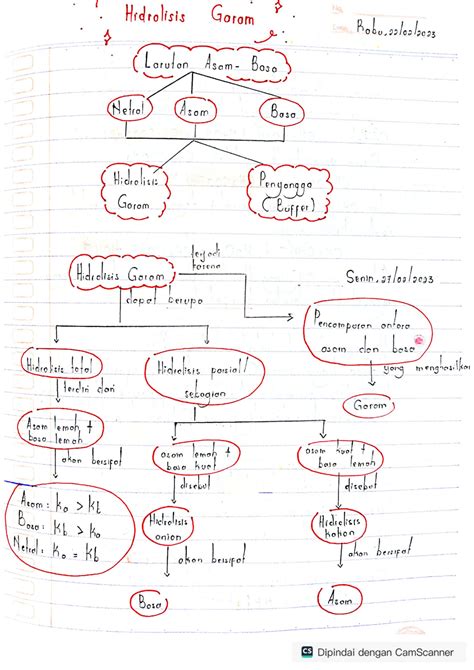 Hidrolisis Garam
Rabu, 22/02/2023
Larutan Asam-Basa
Netral
Asam
Basa
Hidrolisis
Garam
Penyangga
(Buffer)
Hidrolisis Garam
terjadi
karena
Senin, 27/02/2023
dapat berupa
Pencampuran antara
asam dan basa
yang menghasilkan
Garam
Hidrolisis total
terdiri dari
Hidrolisis parsial/
sebagian
Asam lemah +
basa lemah
akan bersifat
asam lemah +
basa kuat
disebut
asam kuat +
basa lemah
disebut
Asam : Ka > Kb
Basa : Kb > Ka
Netral : Ka = Kb
Hidrolisis
anion
akan bersifat
Hidrolisis
kation
akan bersifat
Basa
Asam
CS Dipindai dengan CamScanner